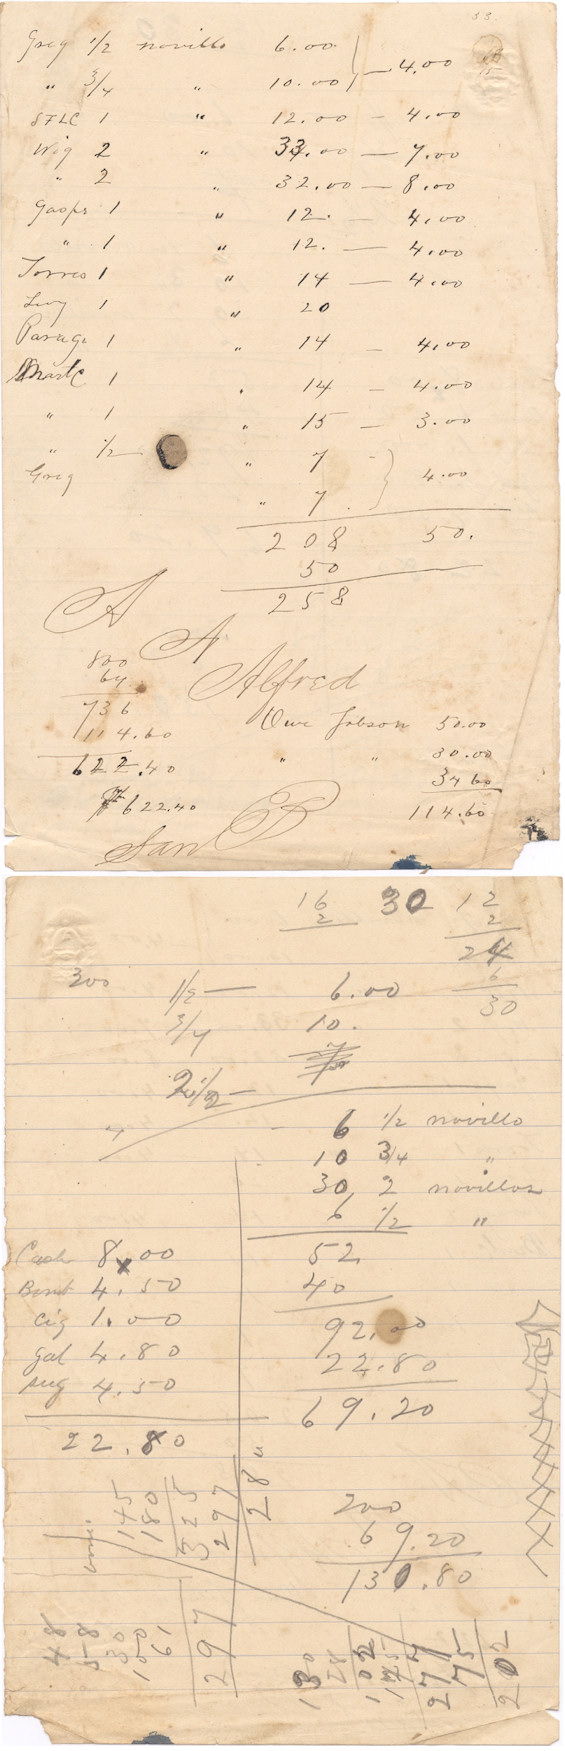 33.
Greg 1/2 novillo 6.00
" 3/4 " 10.00 } — 4.00
STLC 1 " 12.00 — 4.00
Wig 2 " 34.00 — 7.00
" 2 " 32.00 — 8.00
Gaops 1 " 12. — 4.00
" 1 " 12. — 4.00
Torres 1 " 14 — 4.00
1 " 20
1 " 14 — 4.00
1 " 14 — 4.00
" 1 " 15 — 3.00
" 1/2 " 7
Greg " 7 } 4.00
208 50.
50
258
A
A
Alfred
800
64
736
114.60
622.40
#622.40
Owe Jobson 50.00
" " 30.00
34 60
114.60
San
16 30 12
2 2
24
6
30
300 1/2 — 6.00
3/4 10.
2 1/2 —
6 1/2 novillo
10 3/4 "
30 2 novillos
6 1/2 "
52
40
92.00
22.80
69.20
Cash 8.00
4.50
Cig 1.00
gal 4.80
sug 4.50
22.80
200
69.20
130.80
145
180
325
297
28 "
48
58
30
100
61
297
130
28
102
175
277
75
202